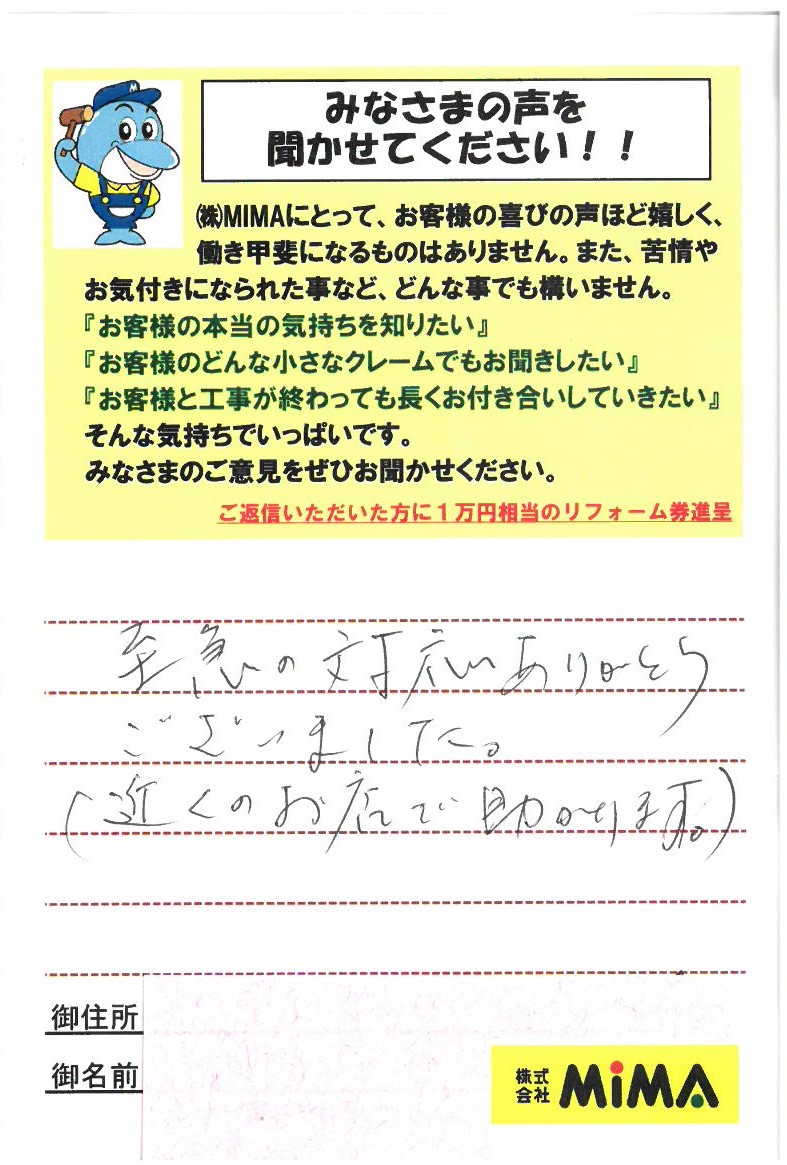 M
みなさまの声を
聞かせてください！！
㈱MIMAにとって、お客様の喜びの声ほど嬉しく、
働き甲斐になるものはありません。また、苦情や
お気付きになられた事など、どんな事でも構いません。
『お客様の本当の気持ちを知りたい』
『お客様のどんな小さなクレームでもお聞きしたい』
『お客様と工事が終わっても長くお付き合いしていきたい』
そんな気持ちでいっぱいです。
みなさまのご意見をぜひお聞かせください。
ご返信いただいた方に１万円相当のリフォーム券進呈
至急の対応ありがとう
ございました。
(近くのお店で助かります。)
御住所
御名前
株式
会社 MiMA